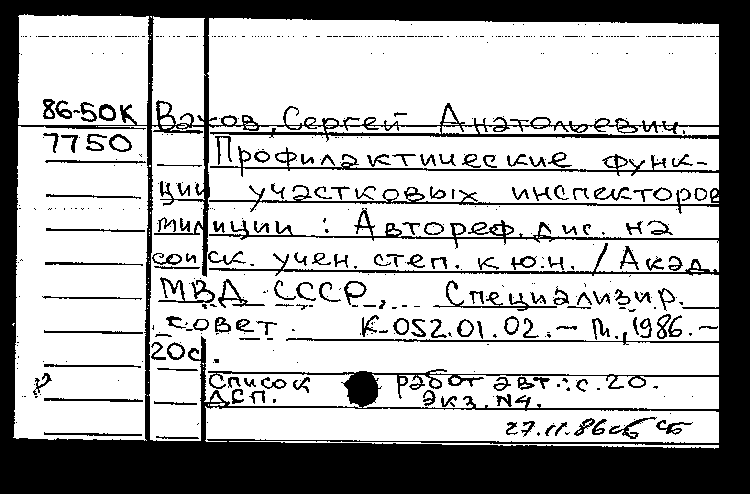 86-50К Вахов, Сергей Анатольевич.
7750 Профилактические функ-
ции участковых инспекторов
милиции : Автореф. дис. на
соиск. учен. степ. к.ю.н. / Акад.
МВД СССР, Специализир.
совет К-052.01.02. – М., 1986. –
20с.
Список работ авт.: с. 20.
ДСП. Экз. N4.
27.11.86 сб сб